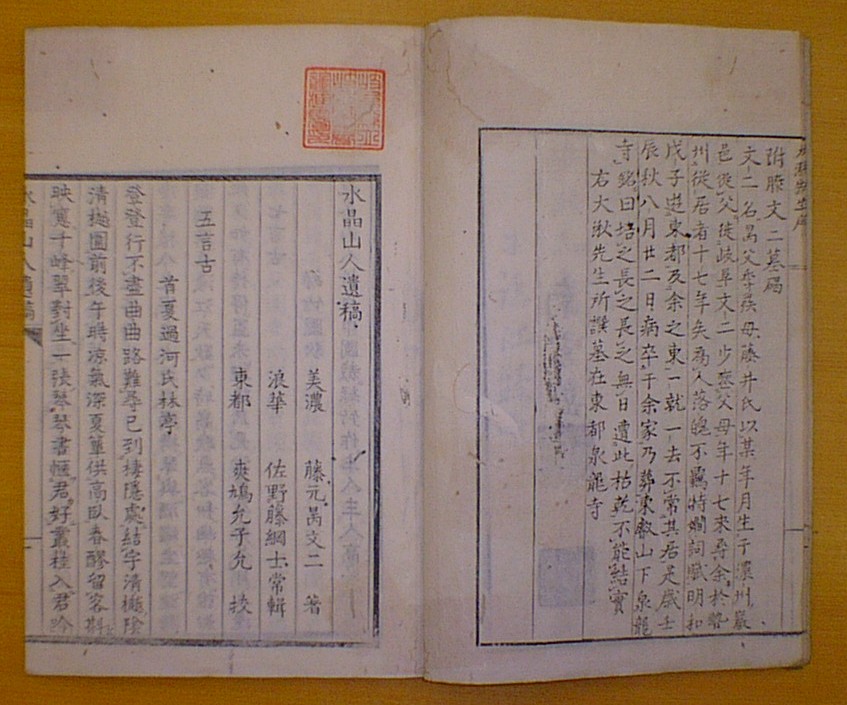 附滕文二墓碣
文二名昺父季疾母藤井氏以某年月生于濃州嚴
邑從父徙岐阜文二少喪父母年十七來尋余於勢
州從居者十七年矣為人落魄不羈特嫺詞賦明和
戊子遊東都及余之東一就一去不常其居是歲壬
辰秋八月廿二日病卒于余家乃葬東叡山下泉龍
寺銘曰培之長之長之無日遭此枯乾不能結實
右大湫先生所譔墓在東都泉龍寺
水晶山人遺稿
美濃 藤元昺文二 著
浪華 佐野藤綱士常輯
東都 爽鳩允子允 挍
五言古
首夏過河氏林亭
登登行不盡曲曲路難尋已到棲隱處結宇清樾陰
清樾園前後午時涼氣深夏簟供高臥春醪留客斟
映寬千峰翠對坐一張琴琴書愜君好叢桂入君吟
水晶山人遺稿